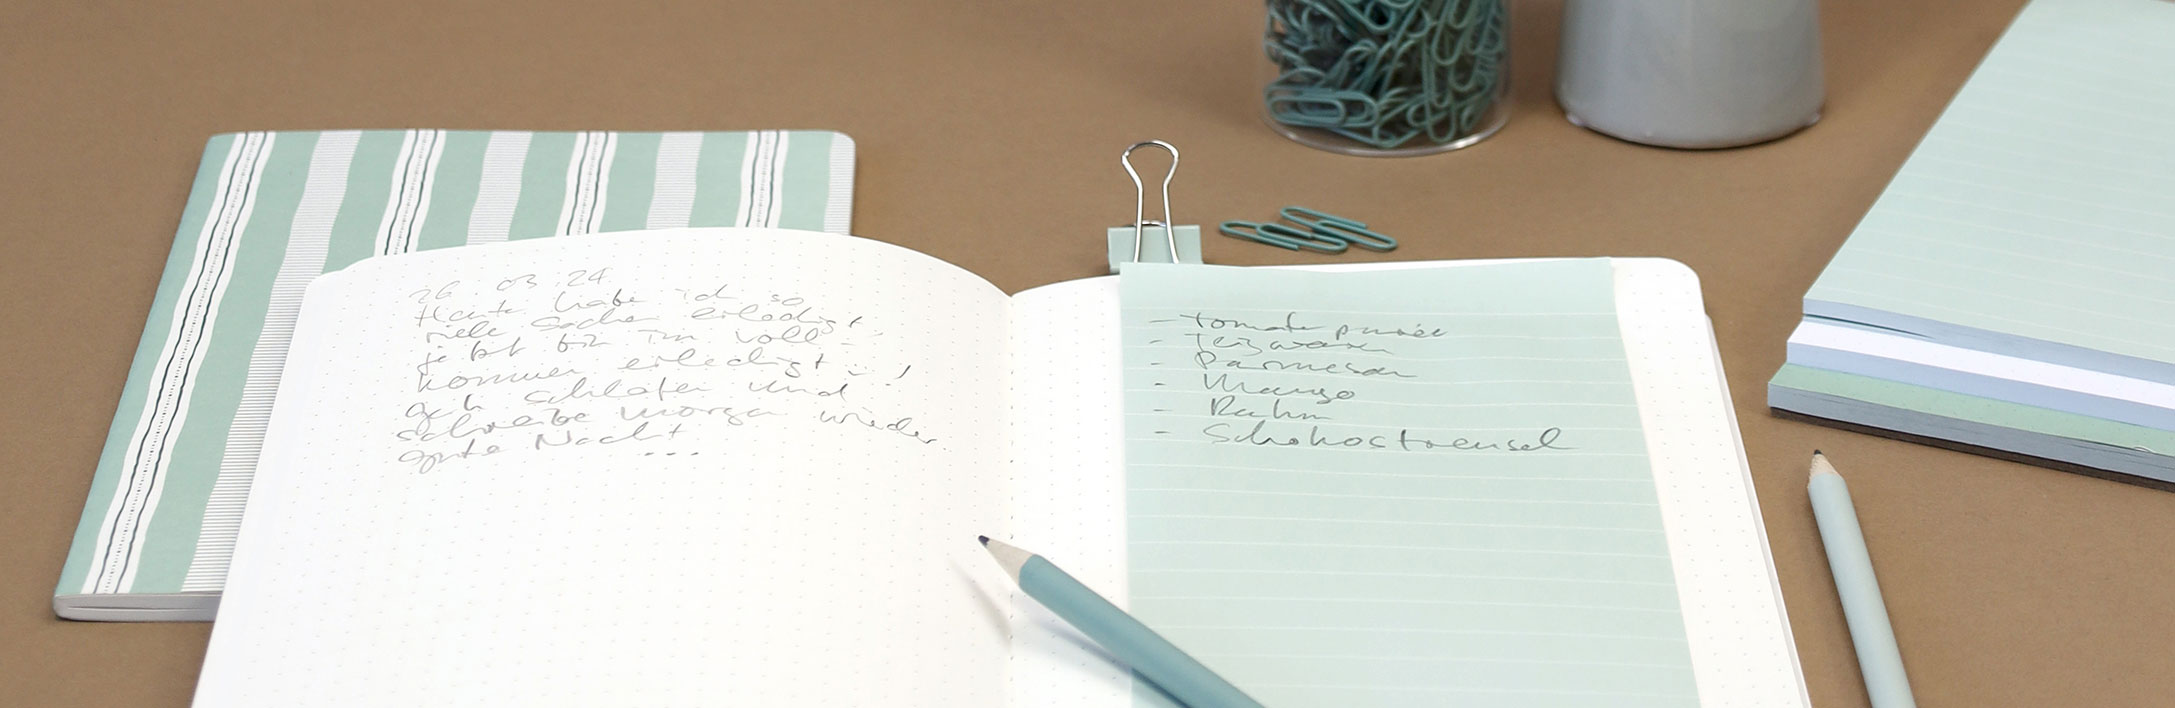 26 03 24
Heute habe ich so
viele Sachen erledigt,
jetzt bin im voll-
kommen erledigt !
geh schlafen und
schreibe morgen wieder.
gute Nacht
...
- Tomatepurée
- Teigwaren
- Parmesan
- Mango
- Rahm
- Schokostreusel